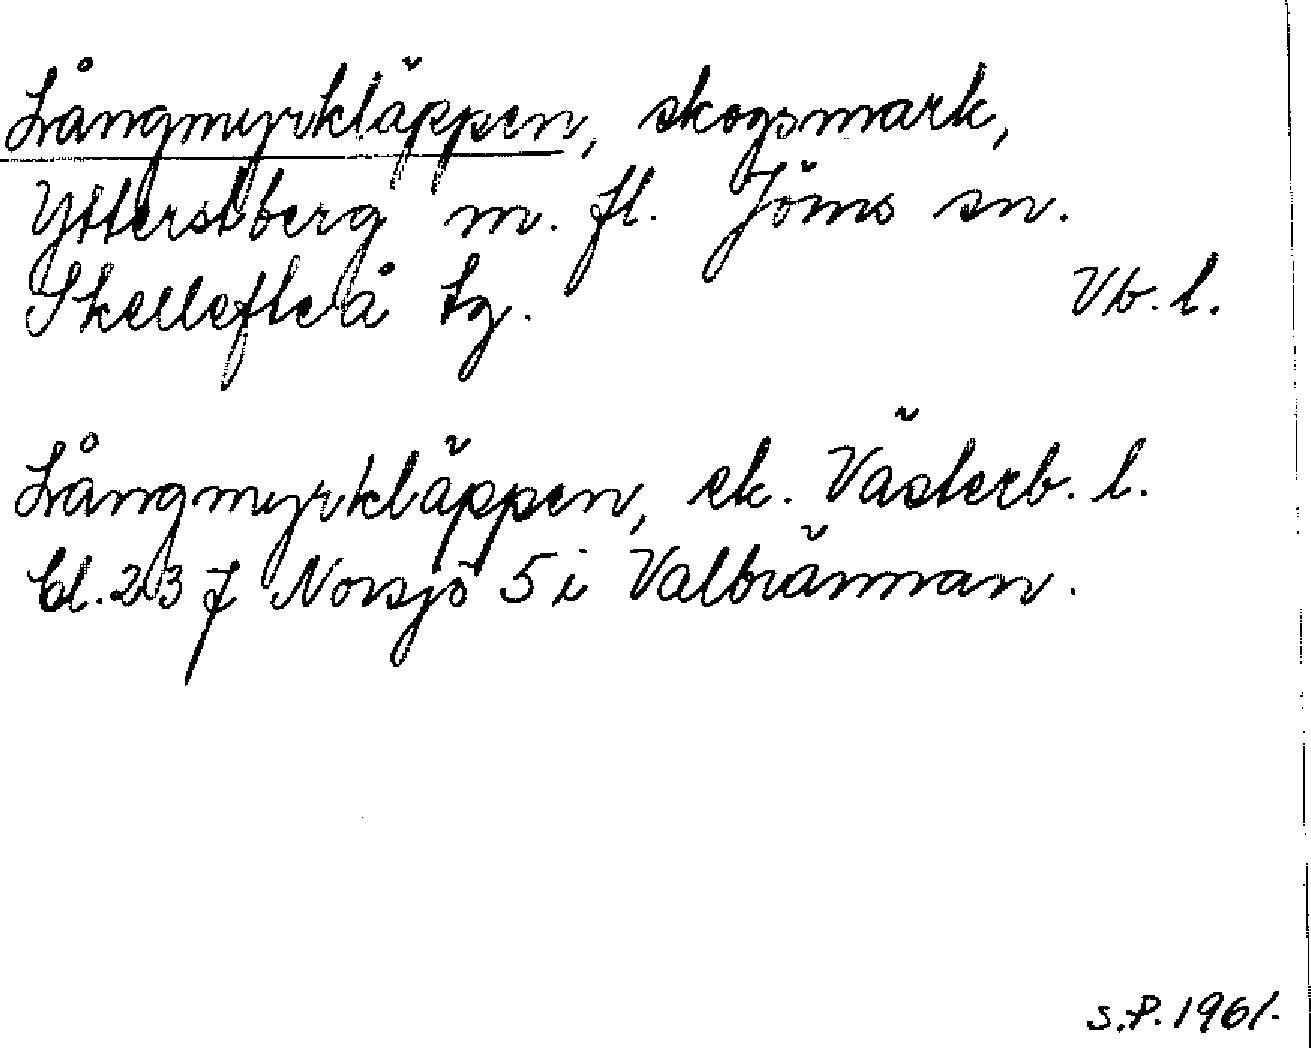 Långmyrkläppen, skogsmark,
Ytterstberg m. fl. Jörns sn.
Skellefteå tg. Vb. l.
Långmyrkläppen, sk. Västerb. l.
Bl. 23 J Norsjö 5 i Valbrännan.
S.P. 1961.